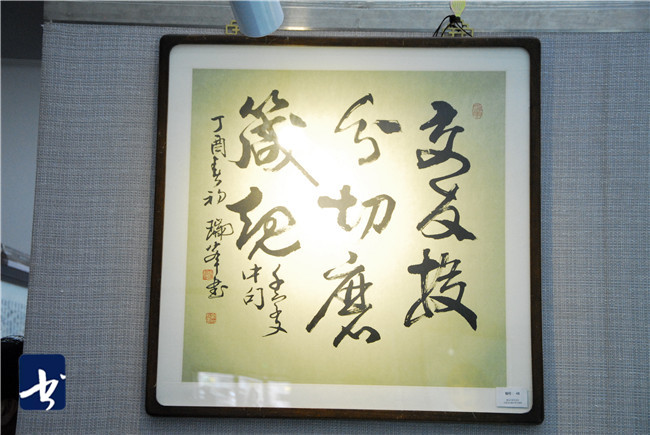 交友投
分切磨
箴規
千字文
中句
丁酉春初 瑞峯书
书